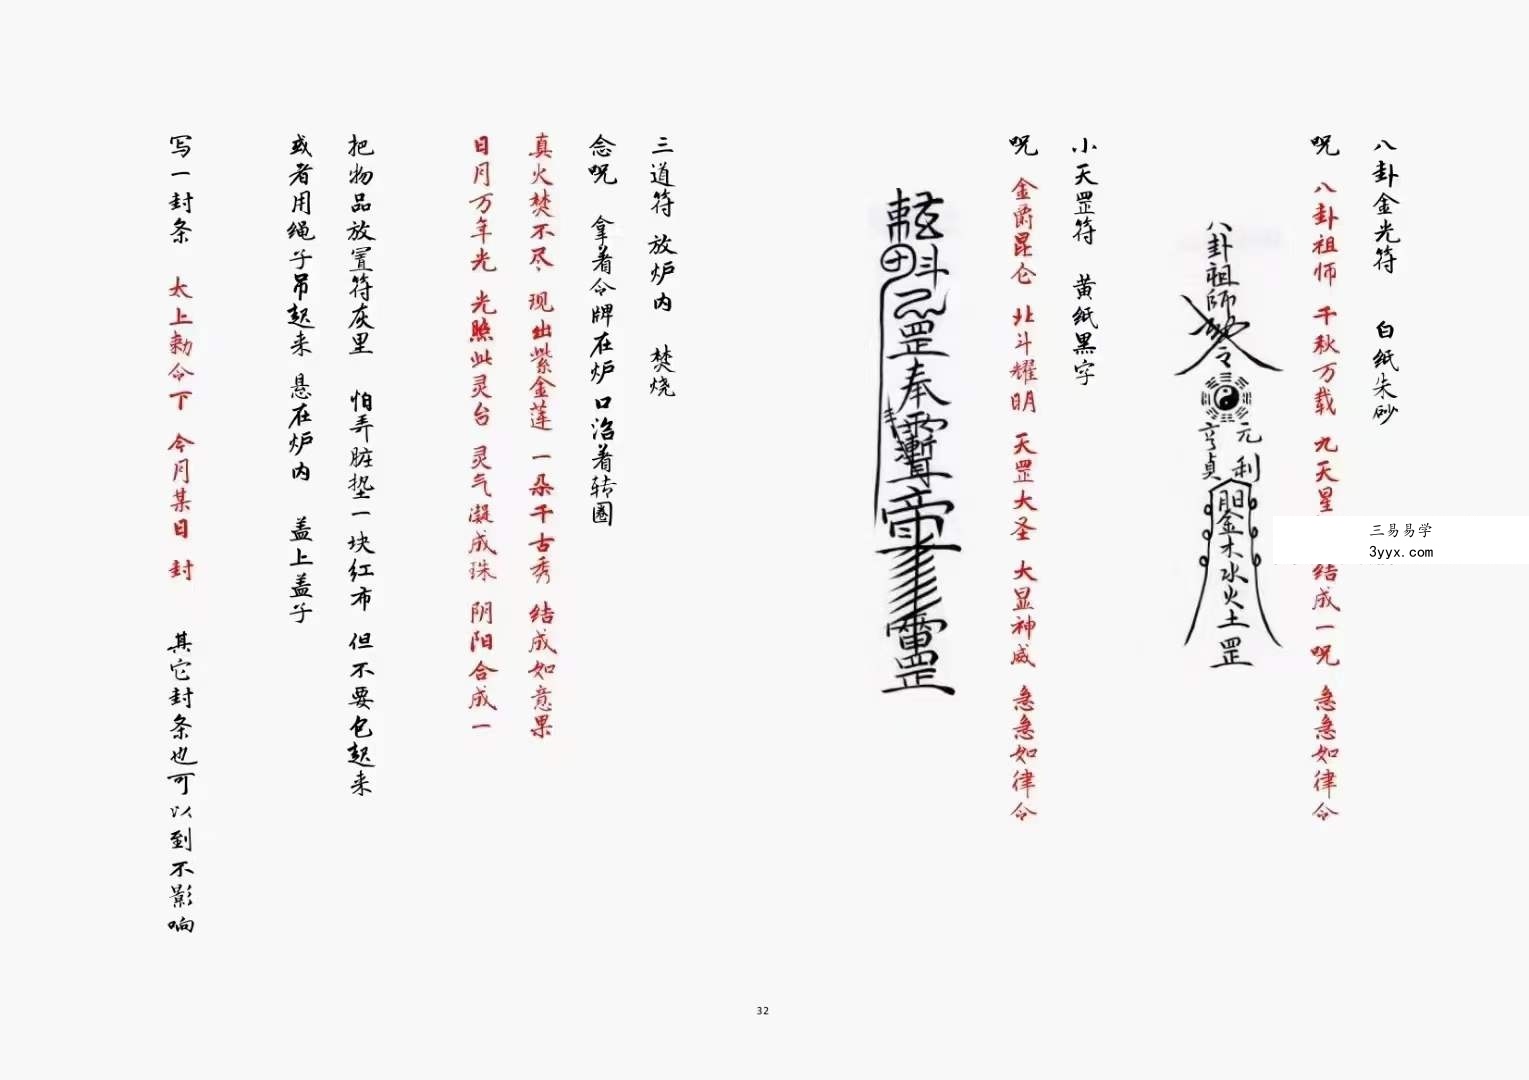 八卦金光符 白纸朱砂
呪 八卦祖师 千秋万载 九天星 结成一呪 急急如律令
八卦祖師
令
元亨利貞
金木水火土罡
小天罡符 黄纸黑字
呪 金爵昆仑 北斗耀明 天罡大圣 大显神威 急急如律令
斗
罡奉
罡
三道符 放炉内 焚烧
念呪 拿着令牌在炉口沿着转圈
真火焚不尽 现出紫金莲 一朵千古秀 结成如意果
日月万年光 光照此灵台 灵气凝成珠 阴阳合成一
把物品放置符灰里 怕弄脏垫一块红布 但不要包起来
或者用绳子吊起来 悬在炉内 盖上盖子
写一封条 太上勅令下 今月某日 封 其它封条也可以到不影响
三易易学
3yyx.com
32